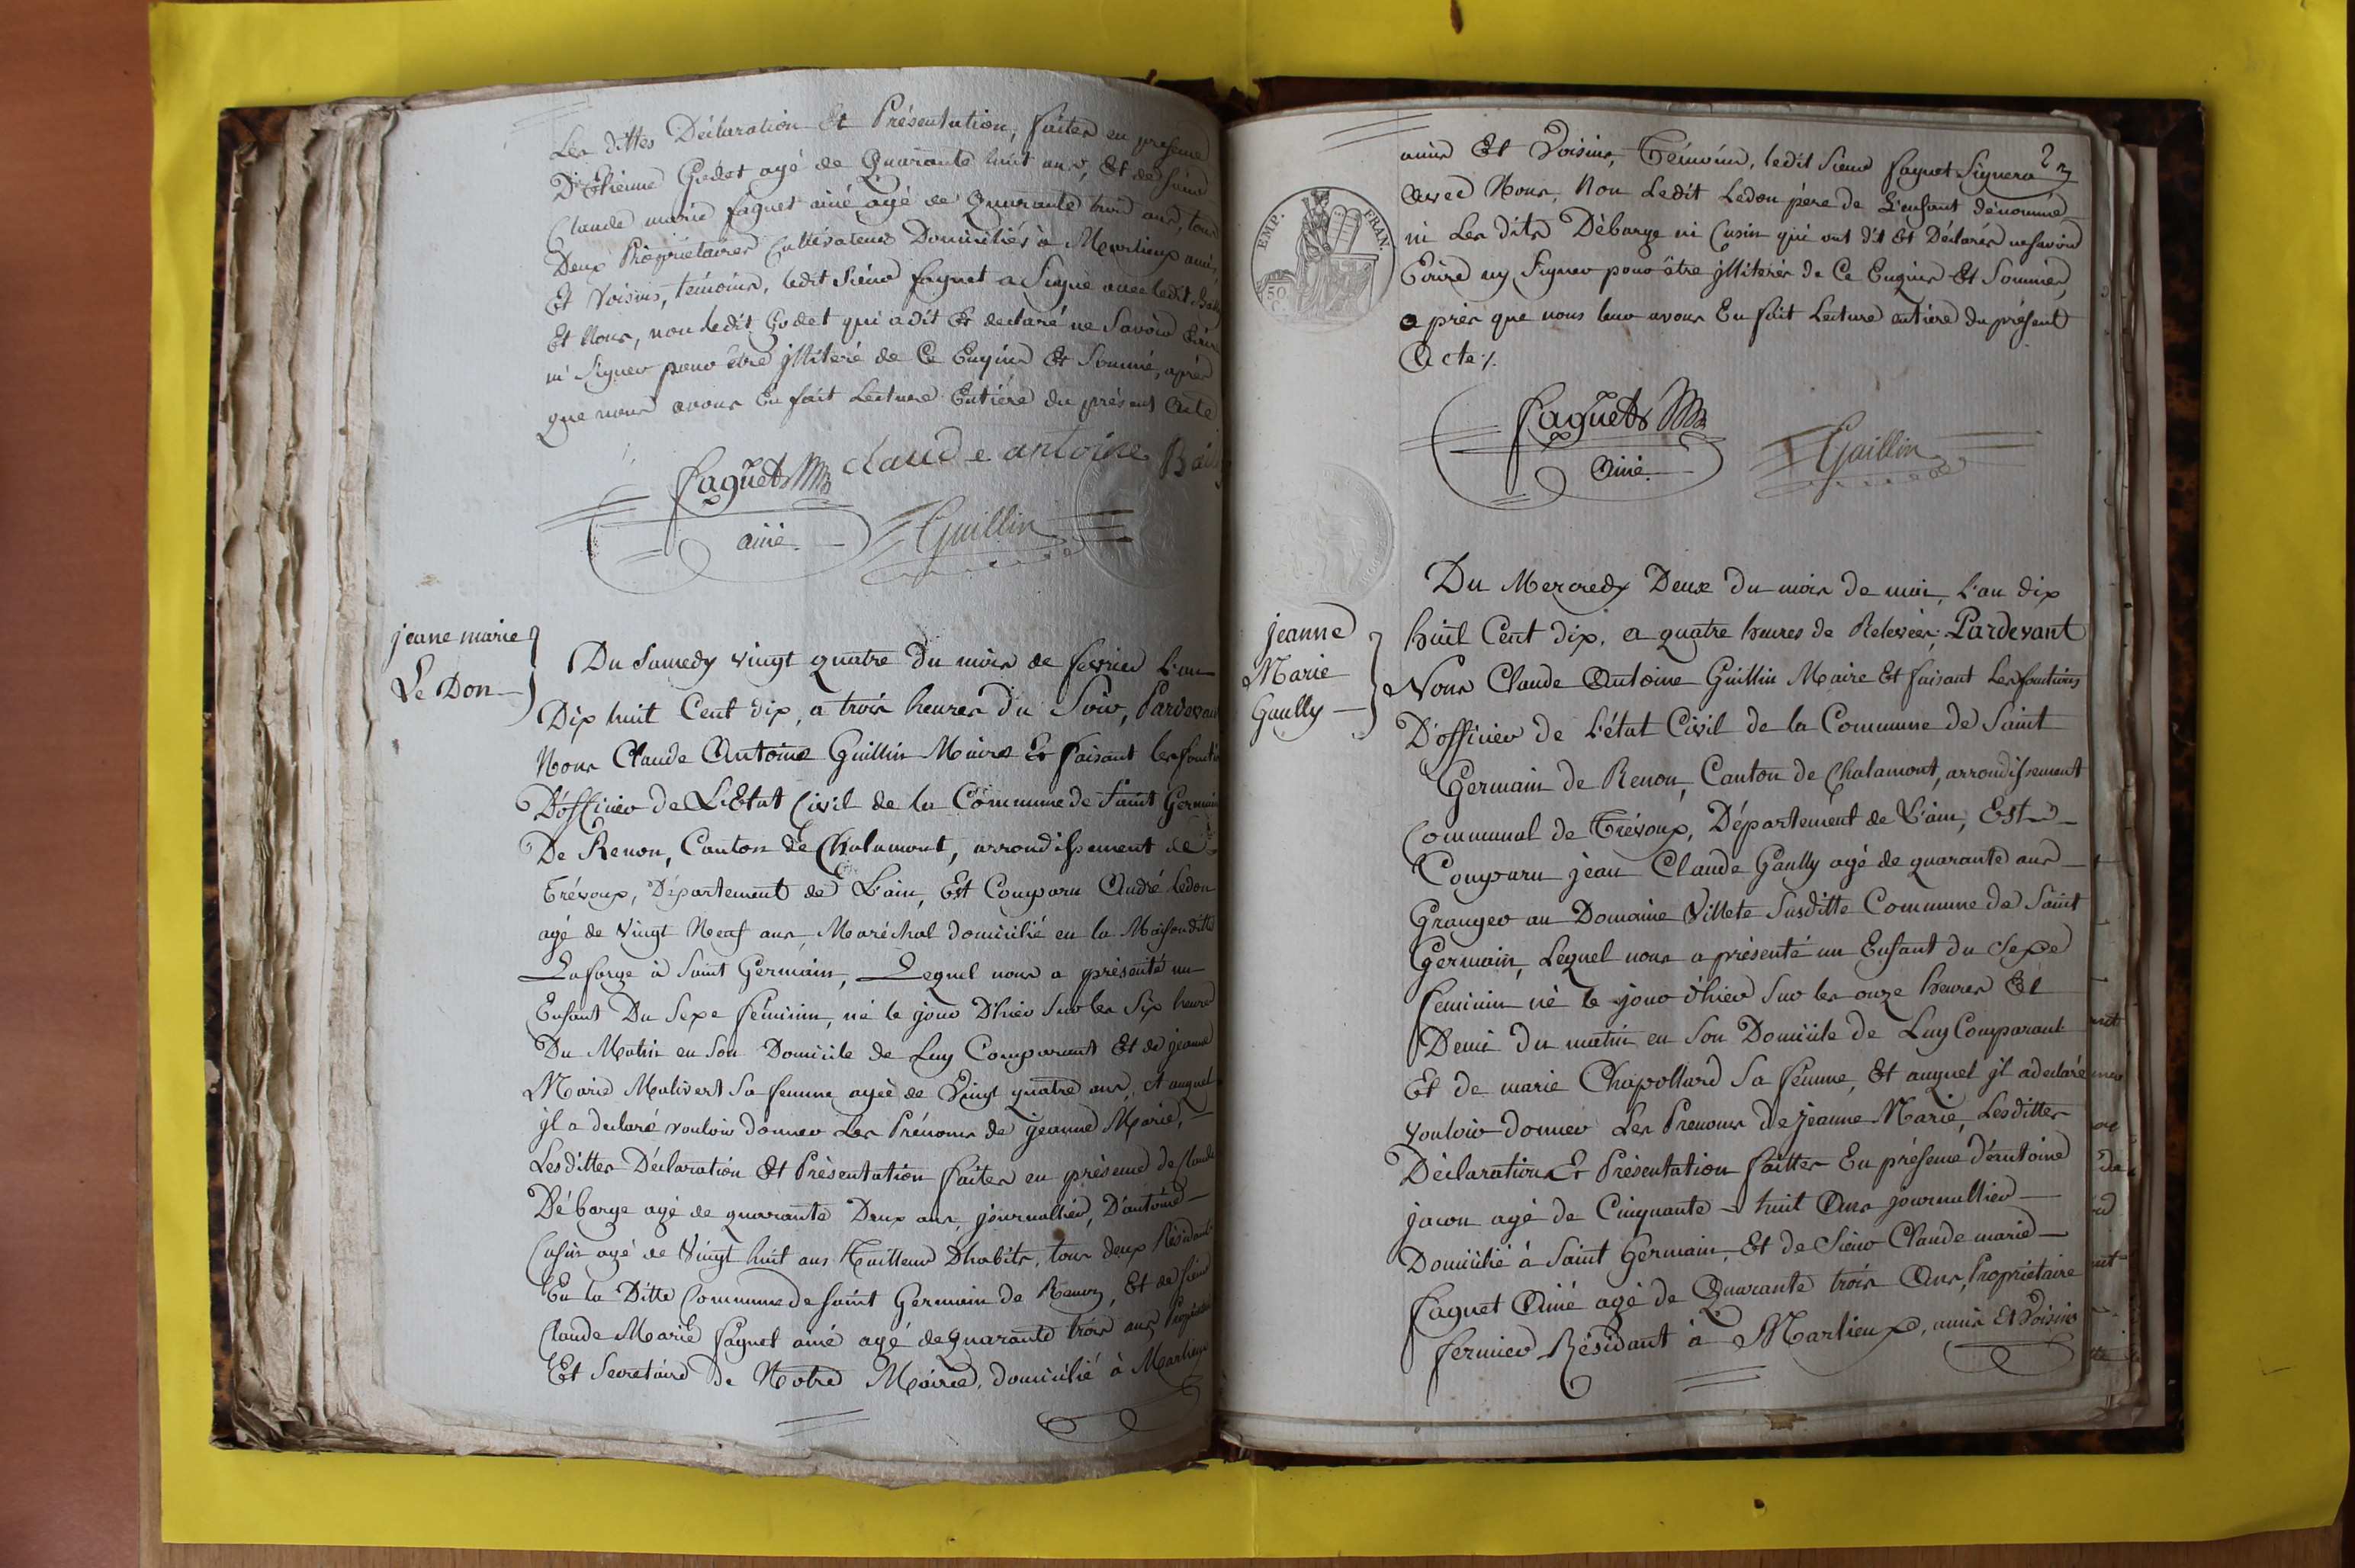 Les dittes Déclaration Et Présentation, faites en presence
D'Etienne Godet agé de Quarante huit ans, Et de sieur
Claude marie faguet ainé agé de Quarante trois ans, tous
Deux Propriétaires Cultivateurs Domiciliés à Marlieux amis,
Et Voisins, témoins, ledit Sieur faguet a Signé avec ledit
Et Nous, non ledit Godet qui a dit Et declaré ne Savoir Ecrire
ni Signer pour être jlliteré de Ce Enquis Et Sommé, après
que nous avons En fait Lecture Entière du présent Acte
faguet claude antoine Bailly
ainé Guillin
jeane marie
Le Don
Du Samedy vingt quatre du mois de fevrier L'an
Dix huit Cent dix, a trois heures du Soir, Pardevant
Nous Claude Antoine Guillin Maire Et faisant les foncti
D'officier de L'Etat Civil de la Commune de Saint Germain
De Renon, Canton de Chalamont, arrondissement de
Trévoux, Département de L'ain, Est Comparu André Ledon
agé de Vingt Neuf ans, Maréchal domicilié en la Maison ditte
Laforge à Saint Germain, Lequel nous a présenté un
Enfant Du Sexe féminin, né le jour D'hier Sur les Six heures
Du Matin en Son Domicile de Luy Comparant Et de jeanne
Marie Malivert Sa femme agée de Vingt quatre ans, et auquel
jl a declaré vouloir donner Les Prénoms de jeanne Marie,
Lesdittes Déclaration Et Présentation faites en présence de Claude
Débarge agé de quarante Deux ans, journallier, D'antoine
Cusin agé de Vingt huit ans Tailleur D'habits, tous deux Residants
En la Ditte Commune de Saint Germain de Renon, Et de Sieur
Claude Marie faguet ainé agé de quarante trois ans Propriétaire
Et Secretaire de Notre Mairie, domicilié à Marlieux
EMP. FRAN.
50
amis Et Voisins, Témoins, ledit Sieur faguet Signera
Avec Nous, Non Ledit Ledon père de L'enfant dénommé
ni Les dits Débarge ni Cusin qui ont dit Et Déclarés nesavoir
Ecrire ny Signer pour être jlliterés de Ce Enquis Et Sommés,
a près que nous leur avons En fait Lecture entière du présent
Acte ∕.
faguet
Ainé Guillin
jeanne
Marie
Gaully
Du Mercredy Deux du mois de mai, L'an dix
huit Cent dix, a quatre heures de Relevées, Pardevant
Nous Claude Antoine Guillin Maire Et faisant Les fonctions
D'officier de L'état Civil de la Commune de Saint
Germain de Renon, Canton de Chalamont, arrondissement
Communal de Trévoux, Département de L'ain, Est
Comparu jean Claude Gaully agé de quarante ans
Granger au Domaine Villete Susditte Commune de Saint
Germain, Lequel nous a présenté un Enfant du Sexe
feminin né le jour d'hier Sur les onze heures Et
Demi du matin en Son Domicile de Luy Comparant
Et de marie Chapollard Sa femme, Et auquel jl adeclaré
vouloir donner Les Prenoms de jeanne Marie, Lesdittes
Déclaration Et Présentation faittes En présence d'antoine
jacon agé de Cinquante huit Ans journallier
Domicilié à Saint Germain, Et de Sieur Claude marie
faguet Ainé agé de Quarante trois Ans, Propriétaire
fermier Résidant à Marlieux, amis Et Voisins